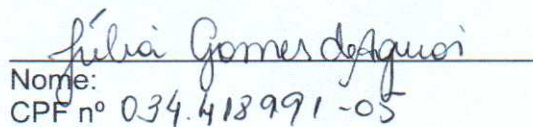 Júlia Gomes de Aguiar
Nome:
CPF nº 034.418991-05